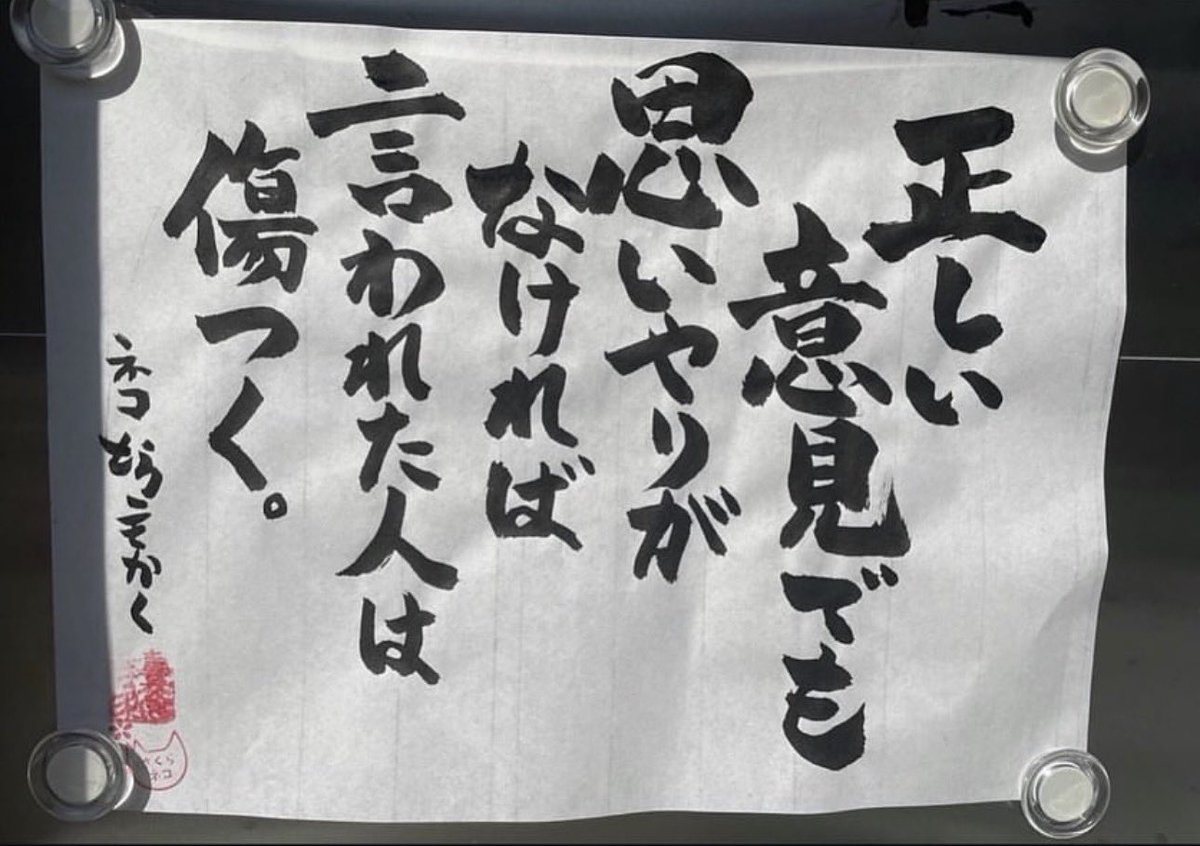 正しい
意見でも
思いやりが
なければ
言われた人は
傷つく。
ネコ
さくら
ネコ